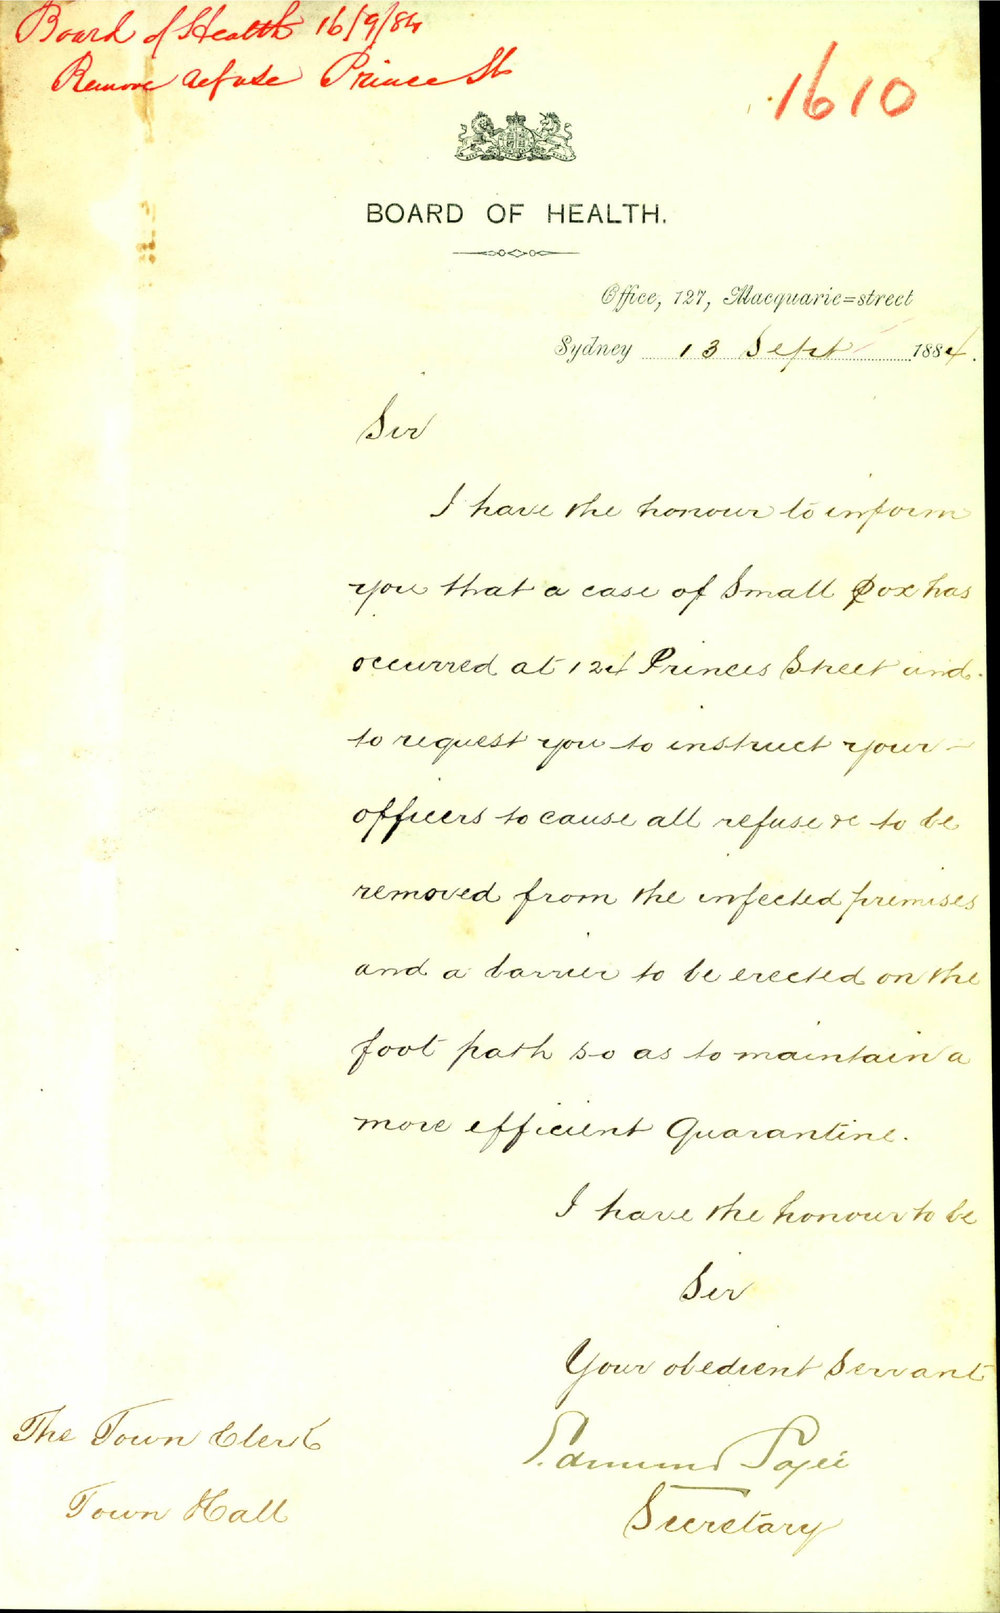 Board of Health 16/9/84
Remove refuse Prince St
1610
BOARD OF HEALTH.
Office, 127, Macquarie=street
Sydney 13 Sept 1884.
Sir
I have the honour to inform
you that a case of Small Pox has
occurred at 124 Princes Street and
to request you to instruct your
officers to cause all refuse &c to be
removed from the infected premises
and a barrier to be erected on the
foot path so as to maintain a
more efficient Quarantine.
I have the honour to be
Sir
Your obedient Servant
Edmund Sager
Secretary
The Town Clerk
Town Hall